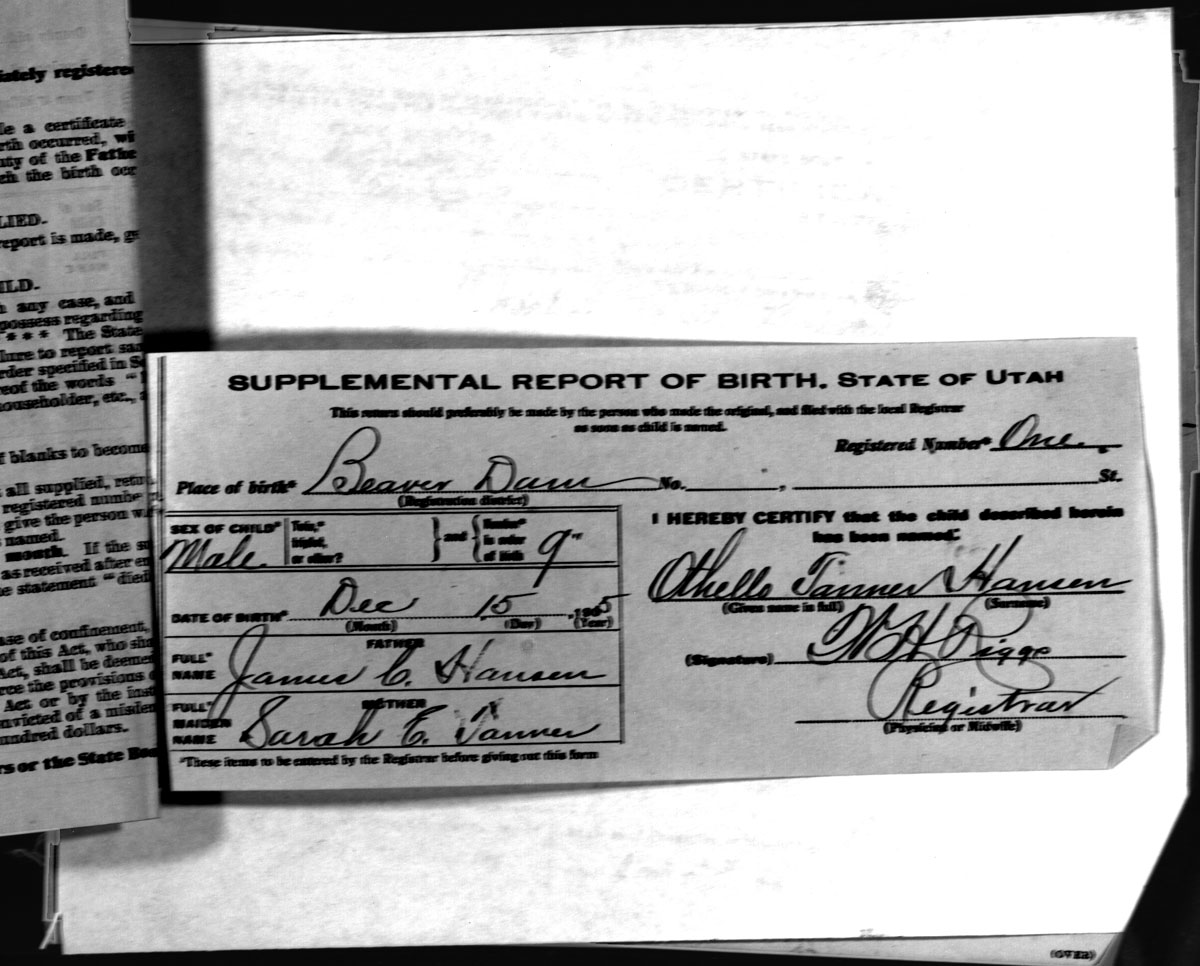 iately registered
le a certificate
rth occurred, wi
uty of the Fathe
ch the birth occ
LIED.
report is made, g
ILD.
any case, and
possess regarding
* * * * The State
lure to report sa
rder specified in S
reof the words "
householder, etc.,
f blanks to become
all supplied, retu
registered numbe
give the person w
named.
month. If the su
as received after e
e statement "died
ase of confinement,
of this Act, who sha
Act, shall be deeme
rce the provisions
Act or by the inst
nvicted of a misde
undred dollars.
rs or the State Boa
SUPPLEMENTAL REPORT OF BIRTH. STATE OF UTAH
This return should preferably be made by the person who made the original, and filed with the local Registrar
as soon as child is named.
Registered Number* One.
Place of birth* Beaver Dam No. , St.
(Registration district)
SEX OF CHILD* Male Twin,* triplet, or other? } and { Number* in order of birth 9"
DATE OF BIRTH* Dec 15 , 1905
(Month) (Day) (Year)
FATHER
FULL* NAME James C. Hansen
MOTHER
FULL* MAIDEN NAME Sarah E. Tanner
*These items to be entered by the Registrar before giving out this form
I HEREBY CERTIFY that the child described herein
has been named:
Othello Tanner Hansen
(Given name in full) (Surname)
(Signature) W H Riggs
Registrar
(Physician or Midwife)
(OVER)